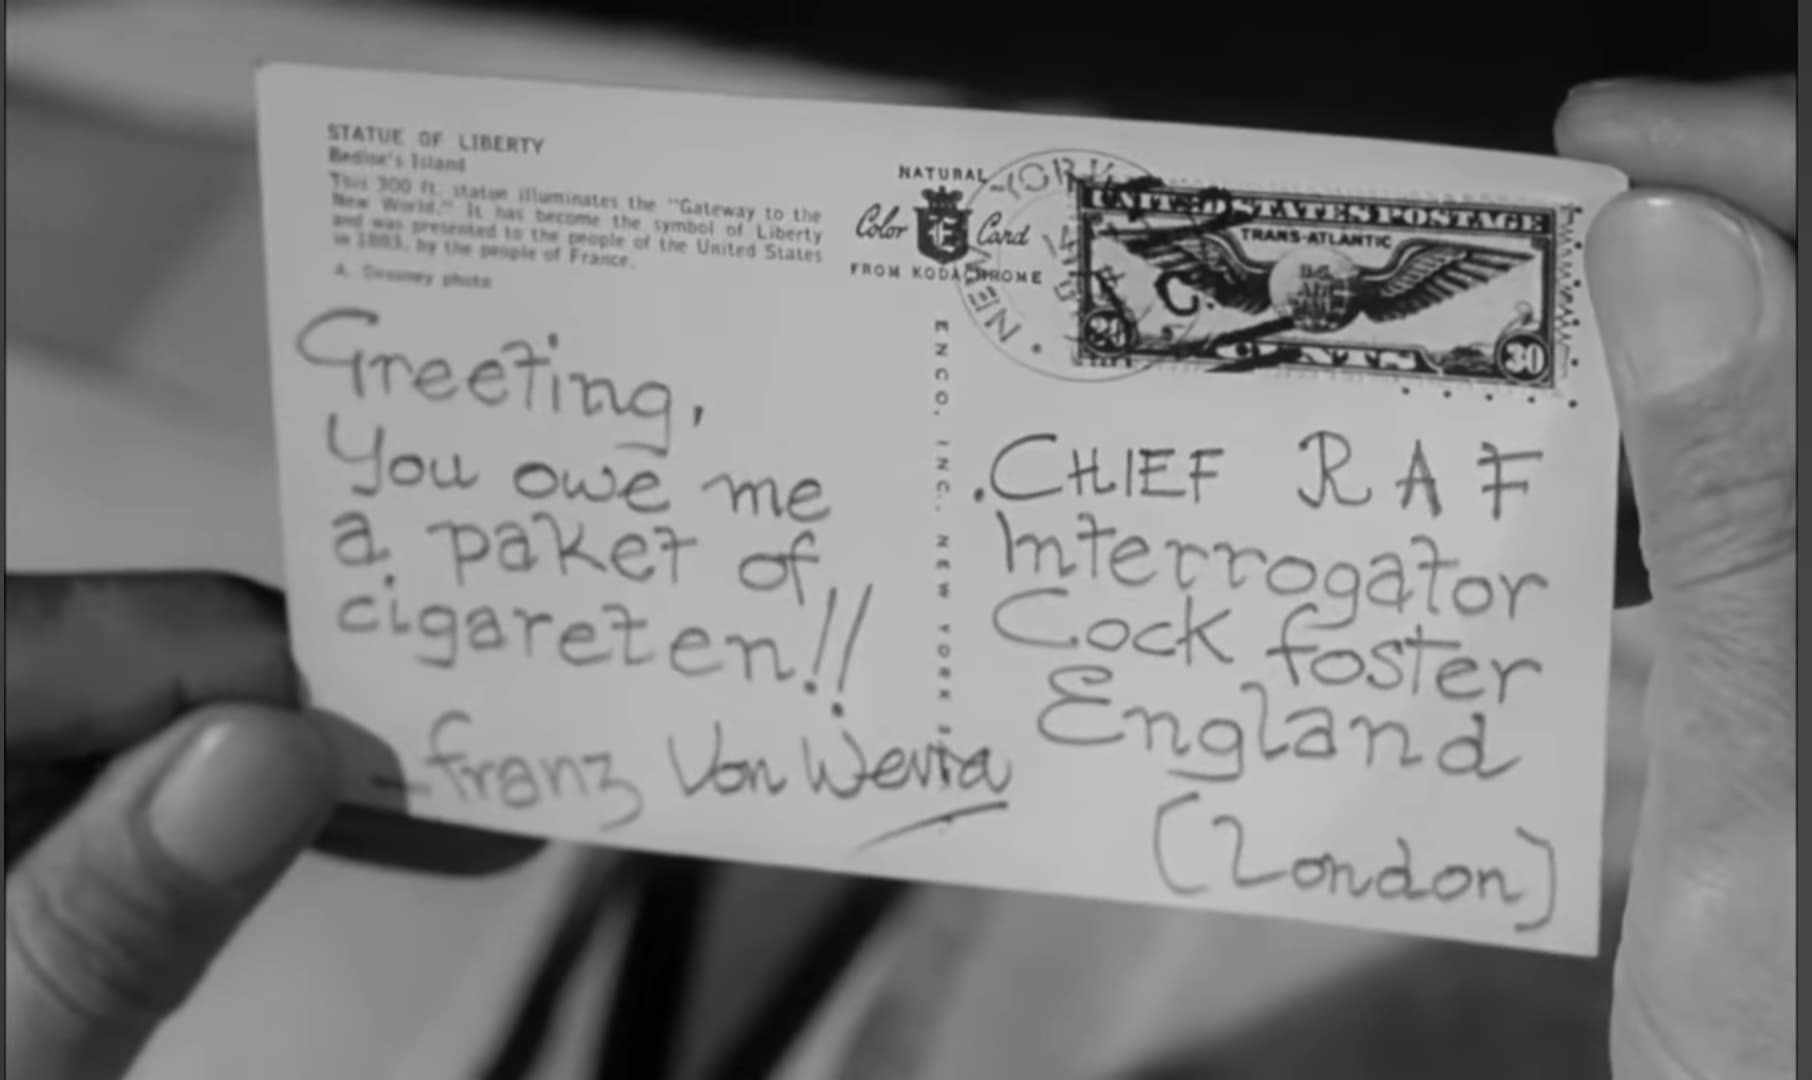 STATUE OF LIBERTY
Bedloe's Island
This 300 ft. statue illuminates the "Gateway to the
New World." It has become the symbol of Liberty
and was presented to the people of the United States
in 1883, by the people of France.
A. photo
NATURAL
Color E Card
FROM KODACHROME
ENCO. INC. NEW YORK
NEW YORK
UNITED STATES POSTAGE
TRANS-ATLANTIC
U.S.
AIR
MAIL
30 CENTS 30
Greeting,
You owe me
a paket of
cigareten!!
Franz Von Werra
CHIEF RAF
Interrogator
Cock foster
England
(London)